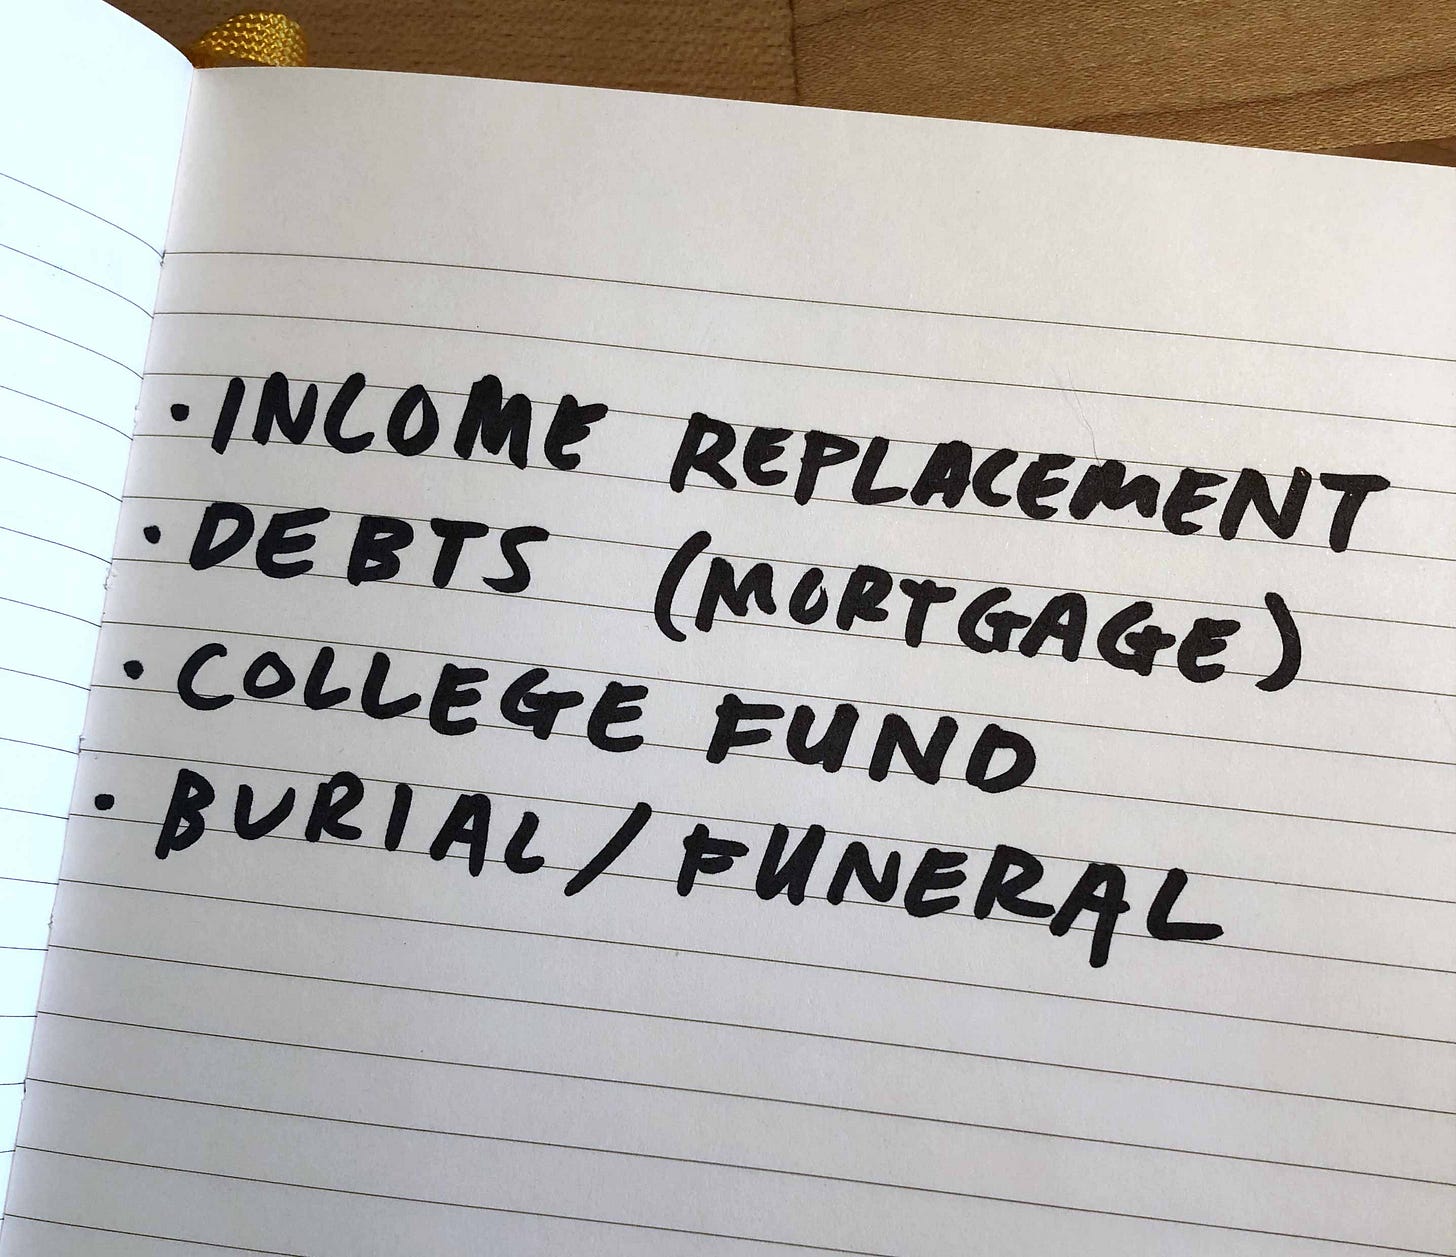 • INCOME REPLACEMENT
• DEBTS (MORTGAGE)
• COLLEGE FUND
• BURIAL / FUNERAL